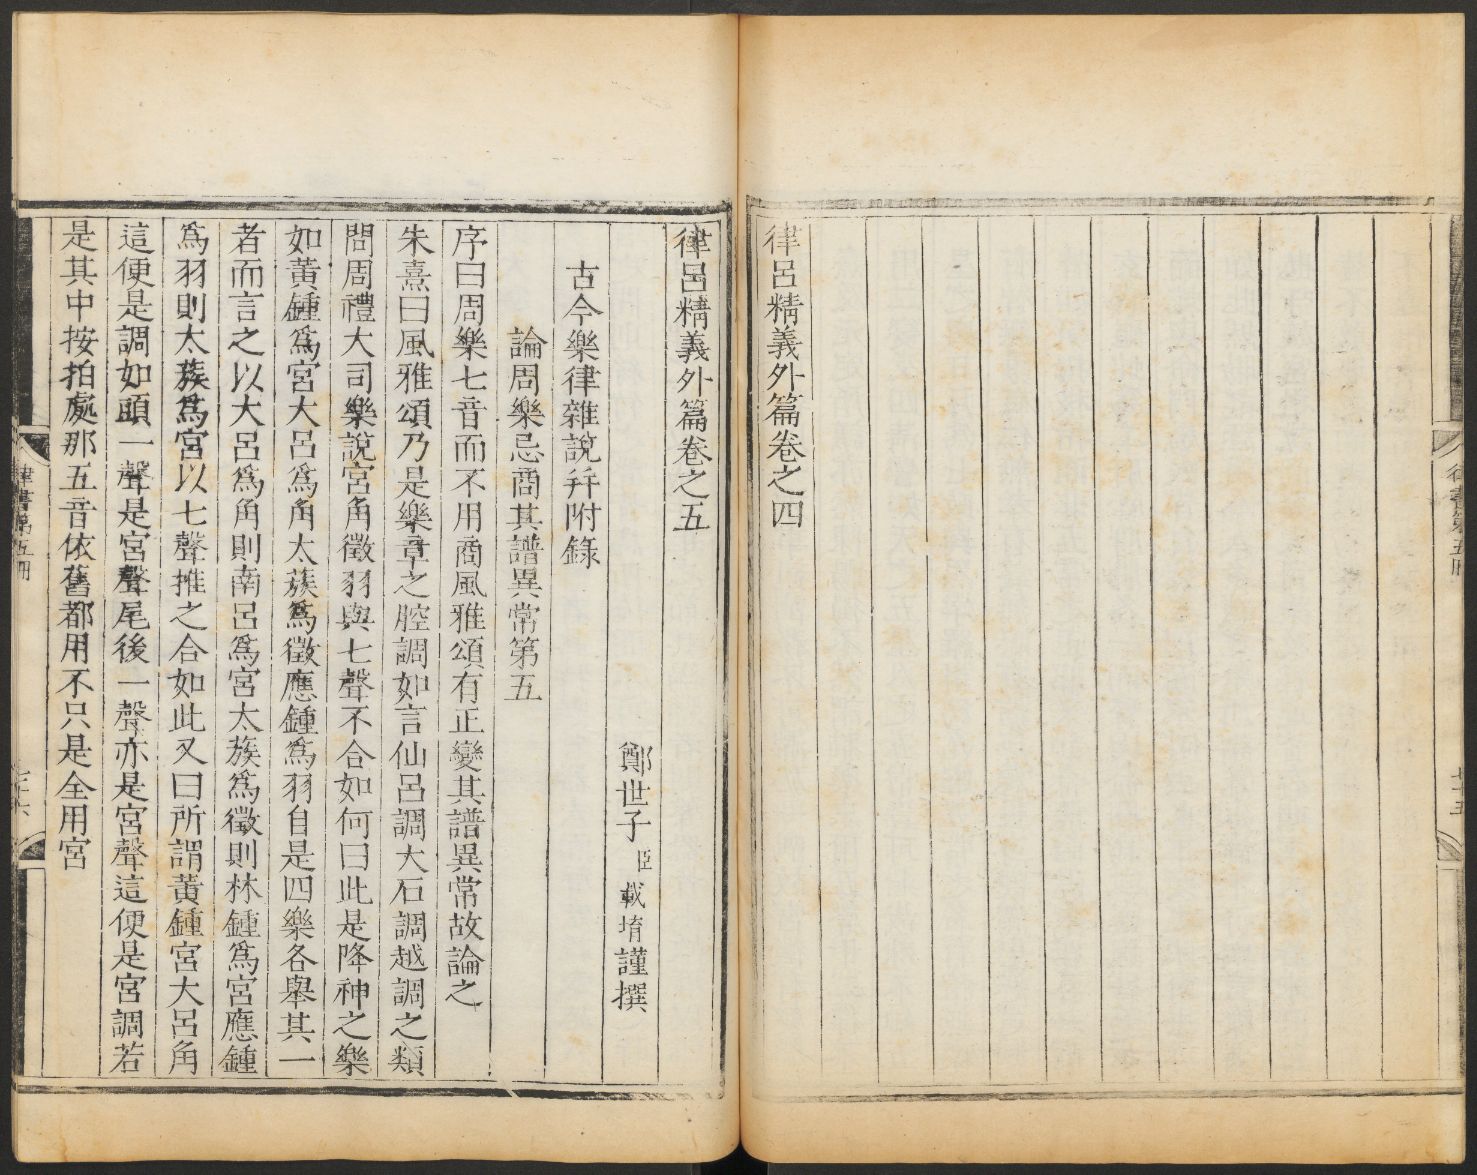 律書第五冊
七十五
律呂精義外篇卷之四
律呂精義外篇卷之五
鄭世子臣載堉謹撰
古今樂律雜說幷附錄
論周樂忌商其譜異常第五
序曰周樂七音而不用商風雅頌有正變其譜異常故論之
朱熹曰風雅頌乃是樂章之腔調如言仙呂調大石調越調之類
問周禮大司樂說宮角徵羽與七聲不合如何曰此是降神之樂
如黃鍾爲宮大呂爲角太蔟爲徵應鍾爲羽自是四樂各舉其一
者而言之以大呂爲角則南呂爲宮太蔟爲徵則林鍾爲宮應鍾
爲羽則太蔟爲宮以七聲推之合如此又曰所謂黃鍾宮大呂角
這便是調如頭一聲是宮聲尾後一聲亦是宮聲這便是宮調若
是其中按拍處那五音依舊都用不只是全用宮
律書第五冊